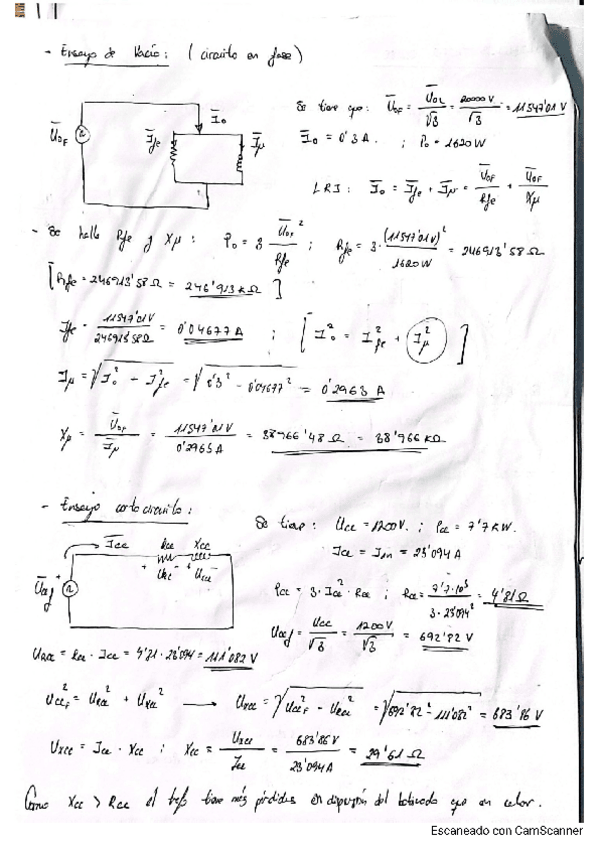 - Ensayo de Vacío: (circuito en fase)
Se tiene que: U̅oF = U̅oL/√3 = 20000V/√3 = 11547'01V
U̅oF I̅o I̅fe I̅μ
I̅o = 0'3A. ; Po = 1620W
LKI: I̅o = I̅fe + I̅μ = U̅oF/Rfe + U̅oF/Xμ
- Se halla Rfe y Xμ: Po = 3 U̅oF²/Rfe ; Rfe = 3·(11547'01V)²/1620W = 246913'58Ω
[Rfe = 246913'58Ω = 246'913 kΩ]
Ife = 11547'01V/246913'58Ω = 0'04677A ; [Io² = Ife² + Iμ²]
Iμ = √Io² - Ife² = √0'3² - 0'04677² = 0'2963 A
Xμ = U̅oF/I̅μ = 11547'01V/0'2963A = 38966'48Ω = 38'966 kΩ
- Ensayo cortocircuito:
Se tiene: Ucc = 1200V. ; Pcc = 7'7KW.
I̅cc Rcc Xcc
Icc = I1n = 23'094A
U̅ccf URcc UXcc
Pcc = 3·Icc²·Rcc ; Rcc = 7'7·10³/3·23'094² = 4'81Ω
Uccf = Ucc/√3 = 1200V/√3 = 692'82V
URcc = Rcc·Icc = 4'81·23'094 = 111'082V
UccF² = URcc² + UXcc² → UXcc = √UccF² - URcc² = √692'82² - 111'082² = 683'86V
UXcc = Icc·Xcc ; Xcc = UXcc/Icc = 683'86V/23'094A = 29'61Ω
Como Xcc > Rcc el trafo tiene más pérdidas en dispersión del bobinado que en calor.
Escaneado con CamScanner